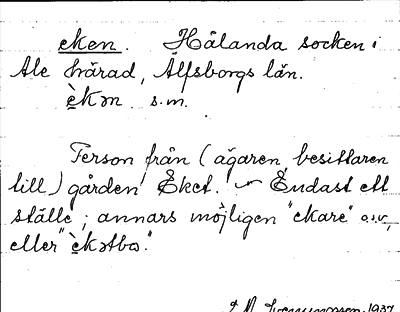 eken. Hålanda socken i
Ale härad, Älfsborgs län.
èkən s.m.
Person från (ägaren besittaren
till) gården Eket. Endast ett
ställe; annars möjligen "ekare" o.s.v,
eller "èkətbo".
1937